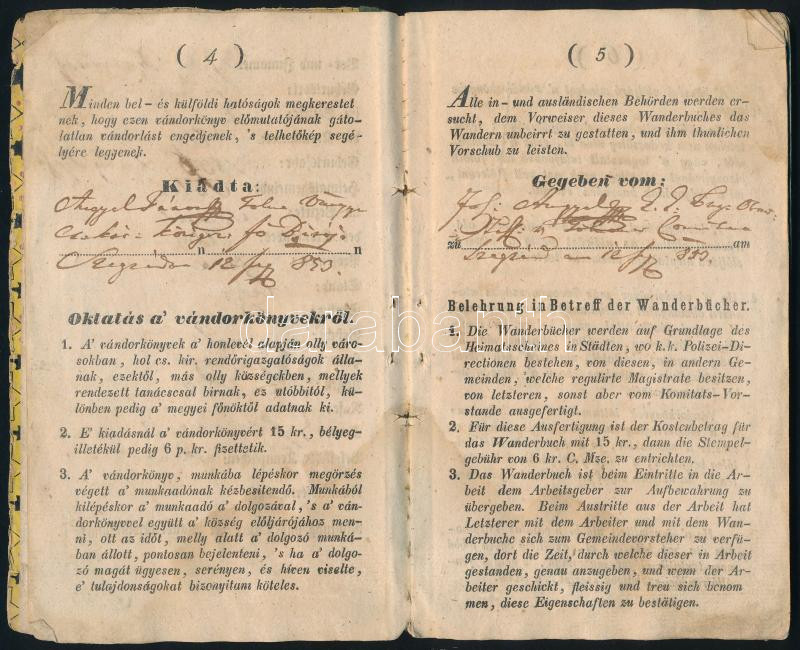 ( 4 )
Minden bel- és külföldi hatóságok megkerestet
nek, hogy ezen vándorkönyv előmutatójának gáto-
latlan vándorlást engedjenek, 's telhetőkép segé-
lyére legyenek.
Kiádta:
Angyal János Tolna
n n
Szegszárdon 12 853
Oktatás a' vándorkönyvekről.
1. A' vándorkönyvek a' honlevél alapján olly váro-
sokban, hol cs. kir. rendőrigazgatóságok álla-
nak, ezektől, más olly községekben, mellyek
rendezett tanácscsal birnak, ez utóbbitól, kü-
lönben pedig a' megyei főnöktől adatnak ki.
2. E' kiadásnál a' vándorkönyvért 15 kr., bélyeg-
illetékül pedig 6 p. kr. fizettetik.
3. A' vándorkönyv, munkába lépéskor megörzés
végett a' munkaadónak kézbesitendő. Munkából
kilépéskor a' munkaadó a' dolgozával, 's a' ván-
dorkönyvvel együtt a' község előljárójához men-
ni, ott az időt, melly alatt a' dolgozó munká-
ban állott, pontosan bejelenteni, 's ha a' dolgo-
zó magát ügyesen, serényen, és híven viselte,
e' tulajdonságokat bizonyitani köteles.
( 5 )
Alle in- und ausländischen Behörden werden er-
sucht, dem Vorweiser dieses Wanderbuches das
Wandern unbeirrt zu gestatten, und ihm thunlichen
Vorschub zu leisten.
Gegeben vom:
Jos: Angyal
zu Tolnaer Comitats am
Szegszárd am 12 853.
Belehrung in Betreff der Wanderbücher.
1. Die Wanderbücher werden auf Grundlage des
Heimatsscheines in Städten, wo k.k. Polizei-Di-
rectionen bestehen, von diesen, in andern Ge-
meinden, welche regulirte Magistrate besitzen,
von letzteren, sonst aber vom Komitats-Vor-
stande ausgefertigt.
2. Für diese Ausfertigung ist der Kostenbetrag für
das Wanderbuch mit 15 kr., dann die Stempel-
gebühr von 6 kr. C. Mze. zu entrichten.
3. Das Wanderbuch ist beim Eintritte in die Ar-
beit dem Arbeitsgeber zur Aufbewahrung zu
übergeben. Beim Austritte aus der Arbeit hat
Letzterer mit dem Arbeiter und mit dem Wan-
derbuche sich zum Gemeindevorsteher zu verfü-
gen, dort die Zeit, durch welche dieser in Arbeit
gestanden, genau anzugeben, und wenn der Ar-
beiter geschickt, fleissig und treu sich benom
men, diese Eigenschaften zu bestätigen.
darabanth